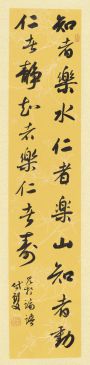 知者樂水仁者樂山知者動
仁者靜知者樂仁者壽
見於論語